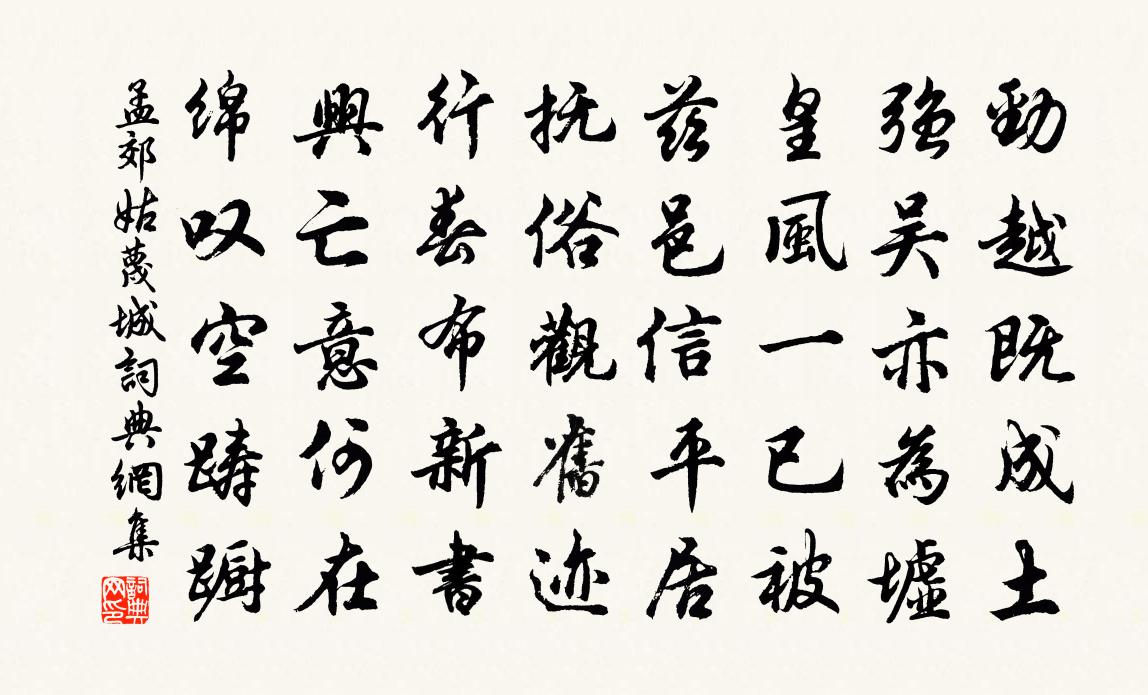 勁越既成土
强吴亦為墟
皇風一已被
茲邑信平居
抚俗觀舊迹
行春布新書
興亡意何在
绵叹空踌蹰
孟郊姑蔑城詞典網集
詞典网印